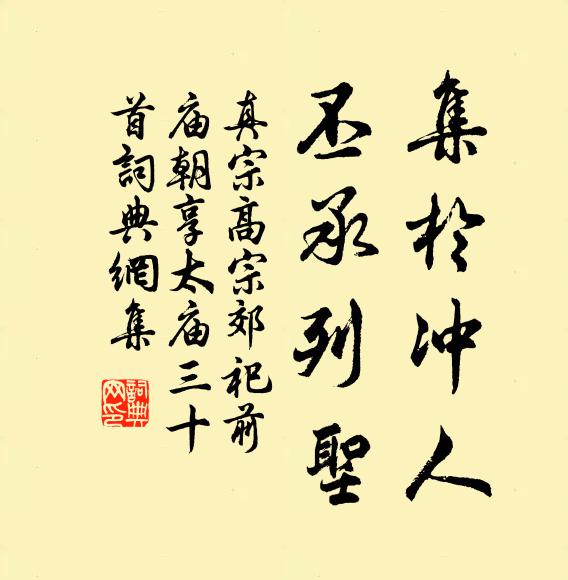 集於冲人
丕承列聖
真宗高宗郊祀前
庙朝享太庙三十
首詞典網集
詞典
网印